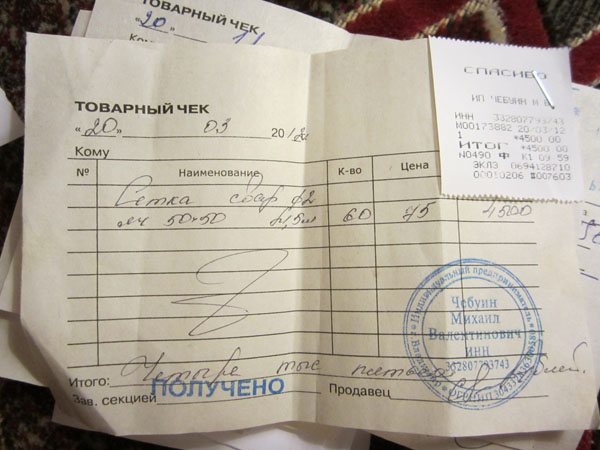 ТОВАРНЫЙ ЧЕК
"20"
СПАСИБО
ИП ЧЕБУИН М
ИНН 332807793743
М00173882 20/03/12
1 *4500 00
ИТОГ *4500 00
N0490 Ф К1 09 59
ЭКЛЗ 0694128710
00013206 #007603
ТОВАРНЫЙ ЧЕК
"20" 03 2012г
Кому
№ Наименование К-во Цена
Сетка свар ф2
яч 50×50 1,5м 60 75 4500
Итого: Четыре тыс пятьсот рублей.
ПОЛУЧЕНО
Зав. секцией Продавец
Индивидуальный предприниматель
Чебуин
Михаил
Валентинович
ИНН
332807793743